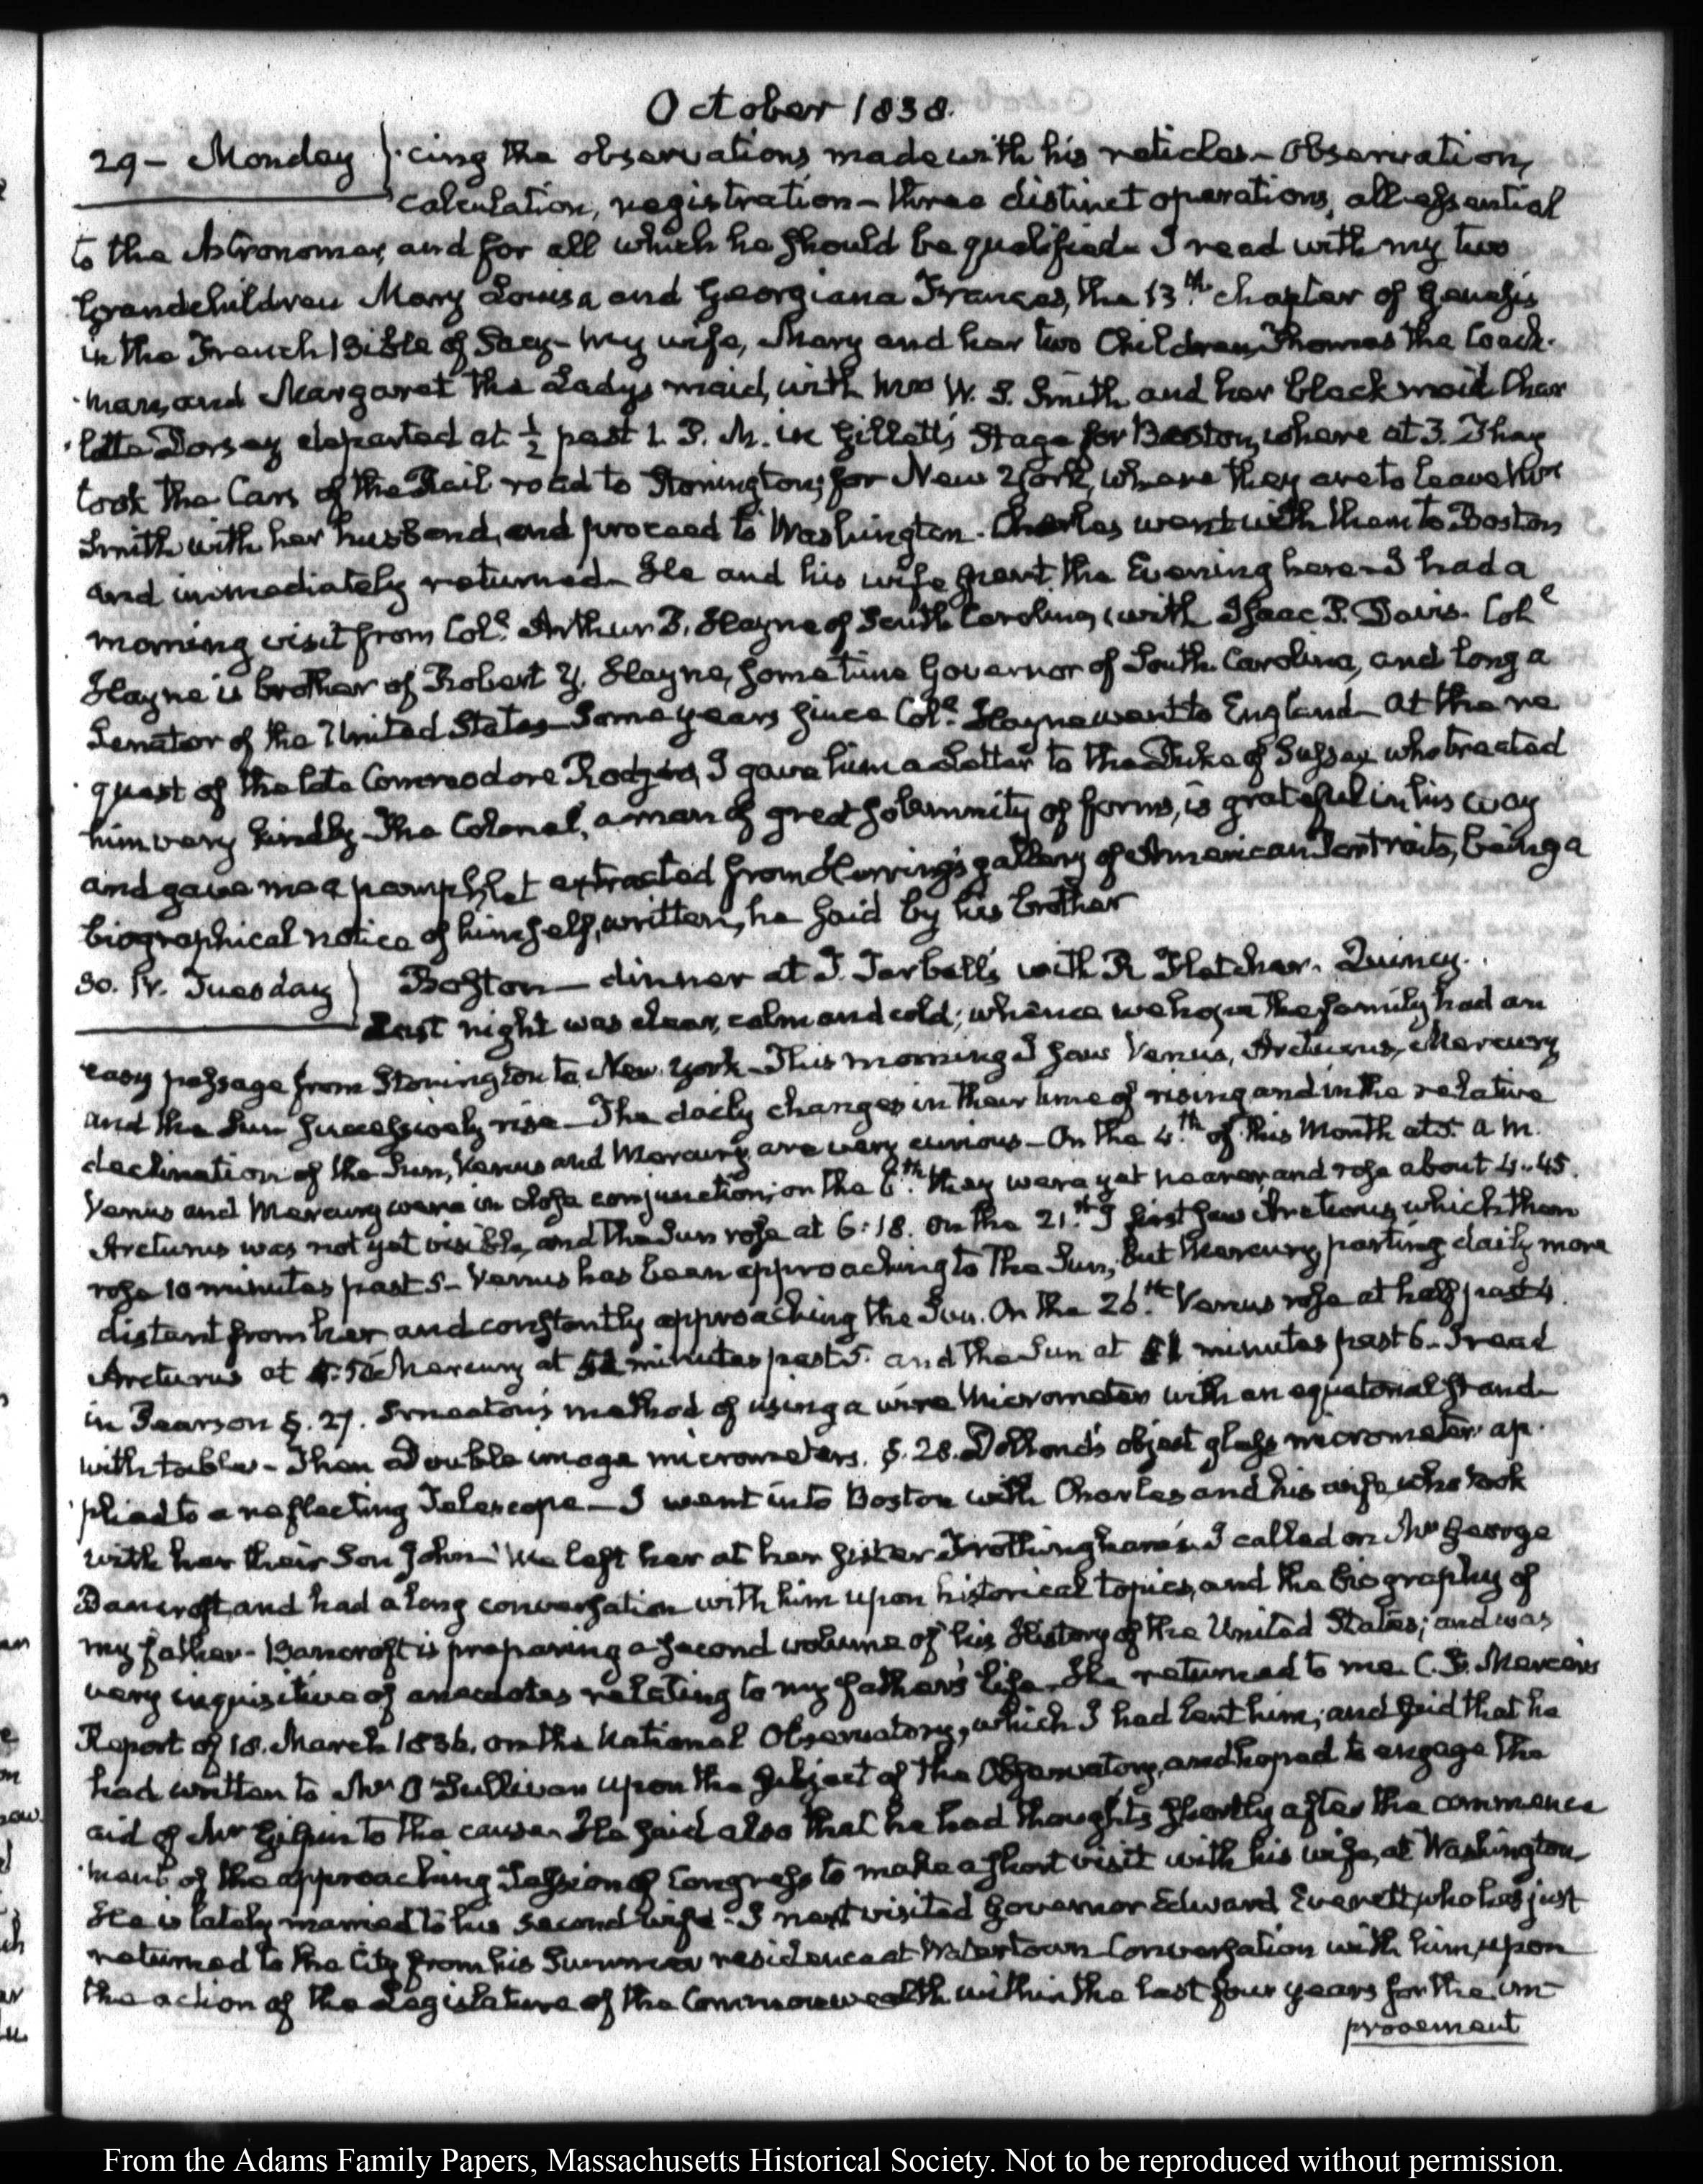 October 1838.
29 - Monday } cing the observations made with his reticles - Observation,
calculation, registration - three distinct operations, all essential
to the Astronomer, and for all which he should be qualified - I read with my two
Grandchildren Mary Louisa and Georgiana Frances, the 13.th chapter of Genesis
in the French Bible of Sacy - My wife, Mary and her two Children, Thomas the Coach-
man, and Margaret the Ladys maid, with Mrs W. S. Smith and her black maid Char
lotte Dorsey departed at ½ past 1. P. M. in Gillett's Stage for Boston, where at 3. They
took the Cars of the Rail road to Stonington, for New York, where they are to leave Mrs
Smith with her husband, and proceed to Washington. Charles went with them to Boston
and immediately returned - He and his wife spent the Evening here - I had a
morning visit from Col.e Arthur P. Hayne of South Carolina, with Isaac P. Davis. Col.e
Hayne is brother of Robert Y. Hayne, sometime Governor of South Carolina, and long a
Senator of the United States - Some years since Col.e Hayne went to England - At the re
quest of the late Commodore Rodgers, I gave him a Letter to the Duke of Sussex who treated
him very kindly - The Colonel, a man of great solemnity of forms, is grateful in his way
and gave me a pamphlet extracted from Herring's gallery of American Portraits, being a
biographical notice of himself, written, he said by his brother
30. IV. Tuesday } Boston - dinner at J. Tarbell's with R Fletcher. Quincy.
Last night was clear, calm and cold; whence we hope the family had an
easy passage from Stonington to New York - This morning I saw Venus, Arcturus, Mercury
and the Sun successively rise - The daily changes in their time of rising and in the relative
declination of the Sun, Venus and Mercury are very curious - On the 4.th of this Month at 5. a m.
Venus and Mercury were in close conjunction; on the 6.th they were yet nearer, and rose about 4..45.
Arcturus was not yet visible, and the Sun rose at 6:18. On the 21.th I first saw Arcturus, which then
rose 10 minutes past 5 - Venus has been approaching to the Sun, but Mercury, parting daily more
distant from her and constantly approaching the Sun. On the 26.th Venus rose at half past 4.
Arcturus at 4:50 Mercury at minutes past 5. and the Sun at minutes past 6 - I read
in Pearson §. 27. Smeaton's method of using a wire Micrometer with an equatorial stand
with tables - Then Double image micrometers. §. 28. Dollond's object glass micrometer ap-
plied to a reflecting Telescope - I went into Boston with Charles and his wife, who took
with her their Son John - We left her at her sister Frothingham's. I called on Mr George
Bancroft, and had a long conversation with him upon historical topics, and the biography of
my father - Bancroft is preparing a second volume of his History of the United States; and was
very inquisitive of anecdotes relating to my father's life - He returned to me C. F. Mercer's
Report of 18. March 1836. on the National Observatory, which I had lent him; and said that he
had written to Mr O'Sullivan upon the subject of the Observatory, and hoped to engage the
aid of Mr Gilpin to the cause - He said also that he had thoughts shortly after the commence
ment of the approaching Session of Congress to make a short visit with his wife, at Washington -
He is lately married to his second wife - I next visited Governor Edward Everett, who has just
returned to the City from his Summer residence at Watertown - Conversation with him, upon
the action of the Legislature of the Commonwealth within the last four years for the im-
provement
From the Adams Family Papers, Massachusetts Historical Society. Not to be reproduced without permission.